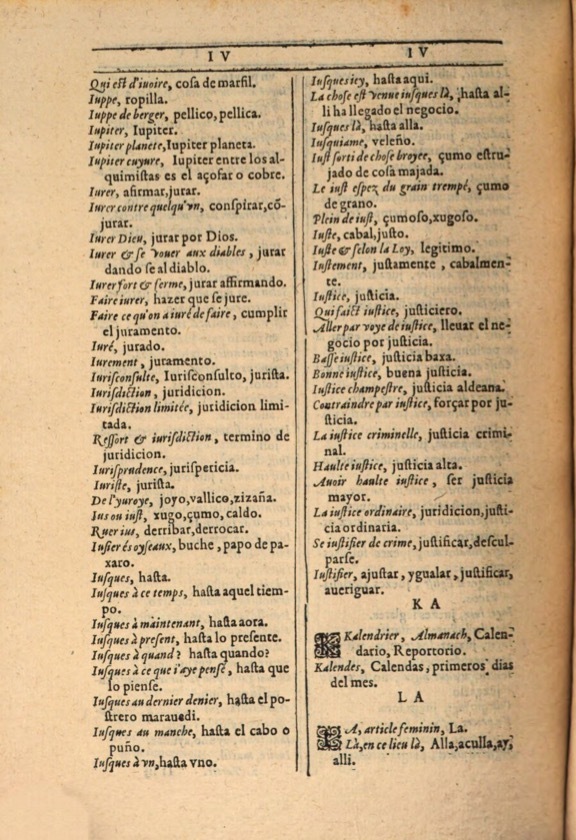 I V
Qui est d'iuoire, cosa de marfil.
Iuppe, ropilla.
Iuppe de berger, pellico, pellica.
Iupiter, Iupiter.
Iupiter planete, Iupiter planeta.
Iupiter cuyure, Iupiter entre los al-
quimistas es el açofar o cobre.
Iurer, afirmar, jurar.
Iurer contre quelqu'vn, conspirar, cō-
jurar.
Iurer Dieu, jurar por Dios.
Iurer & se vouer aux diables, jurar
dando se al diablo.
Iurer fort & ferme, jurar affirmando.
Faire iurer, hazer que se jure.
Faire ce qu'on a iuré de faire, cumplir
el juramento.
Iuré, jurado.
Iurement, juramento.
Iurisconsulte, Iurisconsulto, jurista.
Iurisdiction, juridicion.
Iurisdiction limitée, juridicion limi-
tada.
Ressort & iurisdiction, termino de
juridicion.
Iurisprudence, jurispericia.
Iuriste, jurista.
De l'yuroye, joyo, vallico, zizaña.
Ius ou iust, xugo, çumo, caldo.
Ruer ius, derribar, derrocar.
Iusier és oyseaux, buche, papo de pa-
xaro.
Iusques, hasta.
Iusques à ce temps, hasta aquel tiem-
po.
Iusques à maintenant, hasta aora.
Iusques à present, hasta lo presente.
Iusques à quand? hasta quando?
Iusques à ce que i'aye pensé, hasta que
lo piense.
Iusques au dernier denier, hasta el po-
strero marauedi.
Iusques au manche, hasta el cabo o
puño.
Iusques à vn, hasta vno.
I V
Iusques icy, hasta aqui.
La chose est venue iusques là, hasta al-
li ha llegado el negocio.
Iusques là, hasta alla.
Iusquiame, veleño.
Iust sorti de chose broyee, çumo estru-
jado de cosa majada.
Le iust espez du grain trempé, çumo
de grano.
Plein de iust, çumoso, xugoso.
Iuste, cabal, justo.
Iuste & selon la Loy, legitimo.
Iustement, justamente, cabalmen-
te.
Iustice, justicia.
Qui faict iustice, justiciero.
Aller par voye de iustice, lleuar el ne-
gocio por justicia.
Basse iustice, justicia baxa.
Bonne iustice, buena justicia.
Iustice champestre, justicia aldeana.
Contraindre par iustice, forçar por ju-
sticia.
La iustice criminelle, justicia crimi-
nal.
Haulte iustice, justicia alta.
Auoir haulte iustice, ser justicia
mayor.
La iustice ordinaire, juridicion, justi-
cia ordinaria.
Se iustifier de crime, justificar, descul-
parse.
Iustifier, ajustar, ygualar, justificar,
aueriguar.
K A
KKalendrier, Almanach, Calen-
dario, Reportorio.
Kalendes, Calendas, primeros dias
del mes.
L A
LA, article feminin, La.
Là, en ce lieu là, Alla, aculla, ay,
alli.